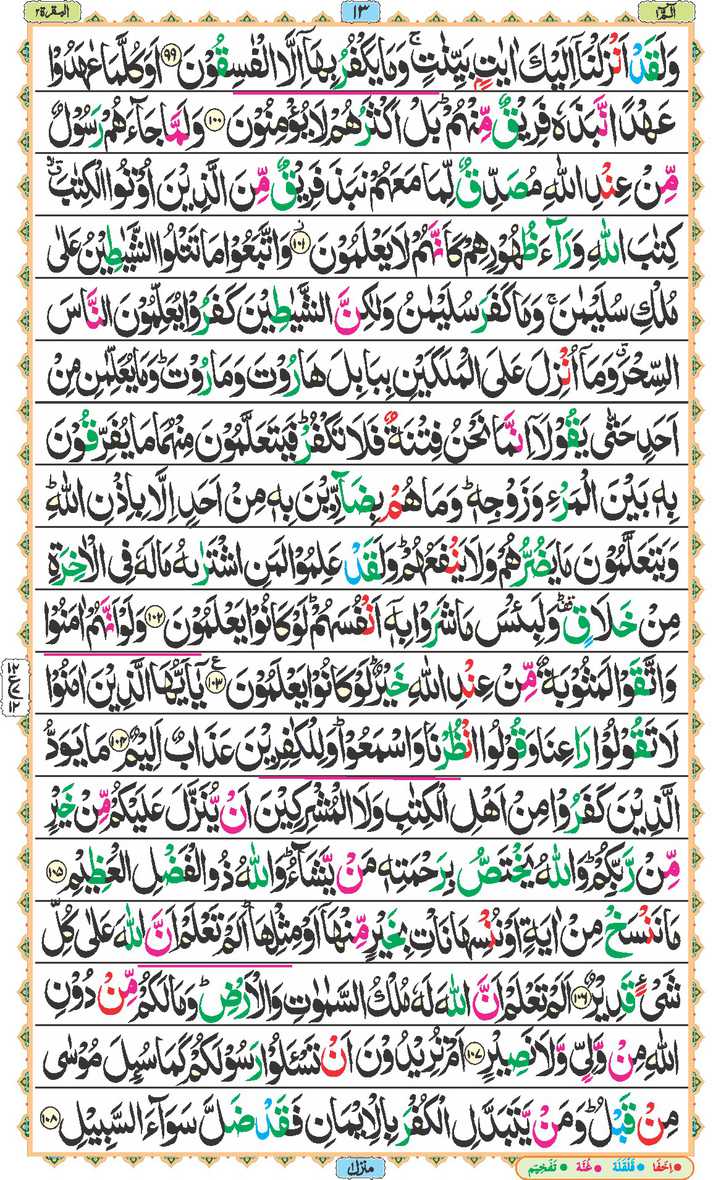 البقرة ٢
١٣
الٓمّٓ ١
وَلَقَدْ اَنْزَلْنَاۤ اِلَيْكَ اٰيٰتٍۭ بَيِّنٰتٍ ۚ وَمَا يَكْفُرُ بِهَاۤ اِلَّا الْفٰسِقُوْنَ ۝۹۹ اَوَكُلَّمَا عٰهَدُوْا
عَهْدًا نَّبَذَهٗ فَرِيْقٌ مِّنْهُمْ ؕ بَلْ اَكْثَرُهُمْ لَا يُؤْمِنُوْنَ ۝۱۰۰ وَلَمَّا جَآءَهُمْ رَسُوْلٌ
مِّنْ عِنْدِ اللّٰهِ مُصَدِّقٌ لِّمَا مَعَهُمْ نَبَذَ فَرِيْقٌ مِّنَ الَّذِيْنَ اُوْتُوا الْكِتٰبَ ۙۗ
كِتٰبَ اللّٰهِ وَرَآءَ ظُهُوْرِهِمْ كَاَنَّهُمْ لَا يَعْلَمُوْنَ ۝۱۰۱ وَاتَّبَعُوْا مَا تَتْلُوا الشَّيٰطِيْنُ عَلٰى
مُلْكِ سُلَيْمٰنَ ۚ وَمَا كَفَرَ سُلَيْمٰنُ وَلٰكِنَّ الشَّيٰطِيْنَ كَفَرُوْا يُعَلِّمُوْنَ النَّاسَ
السِّحْرَ ۗ وَمَاۤ اُنْزِلَ عَلَى الْمَلَكَيْنِ بِبَابِلَ هَارُوْتَ وَمَارُوْتَ ؕ وَمَا يُعَلِّمٰنِ مِنْ
اَحَدٍ حَتّٰى يَقُوْلَاۤ اِنَّمَا نَحْنُ فِتْنَةٌ فَلَا تَكْفُرْ ؕ فَيَتَعَلَّمُوْنَ مِنْهُمَا مَا يُفَرِّقُوْنَ
بِهٖ بَيْنَ الْمَرْءِ وَزَوْجِهٖ ؕ وَمَا هُمْ بِضَآرِّيْنَ بِهٖ مِنْ اَحَدٍ اِلَّا بِاِذْنِ اللّٰهِ ؕ
وَيَتَعَلَّمُوْنَ مَا يَضُرُّهُمْ وَلَا يَنْفَعُهُمْ ؕ وَلَقَدْ عَلِمُوْا لَمَنِ اشْتَرٰىهُ مَا لَهٗ فِى الْاٰخِرَةِ
مِنْ خَلَاقٍ ؕ۟ وَلَبِئْسَ مَا شَرَوْا بِهٖۤ اَنْفُسَهُمْ ؕ لَوْ كَانُوْا يَعْلَمُوْنَ ۝۱۰۲ وَلَوْ اَنَّهُمْ اٰمَنُوْا
وَاتَّقَوْا لَمَثُوْبَةٌ مِّنْ عِنْدِ اللّٰهِ خَيْرٌ ؕ لَوْ كَانُوْا يَعْلَمُوْنَ ۝۱۰۳ ع يٰۤاَيُّهَا الَّذِيْنَ اٰمَنُوْا
لَا تَقُوْلُوْا رَاعِنَا وَقُوْلُوا انْظُرْنَا وَاسْمَعُوْا ؕ وَلِلْكٰفِرِيْنَ عَذَابٌ اَلِيْمٌ ۝۱۰۴ مَا يَوَدُّ
الَّذِيْنَ كَفَرُوْا مِنْ اَهْلِ الْكِتٰبِ وَلَا الْمُشْرِكِيْنَ اَنْ يُّنَزَّلَ عَلَيْكُمْ مِّنْ خَيْرٍ
مِّنْ رَّبِّكُمْ ؕ وَاللّٰهُ يَخْتَصُّ بِرَحْمَتِهٖ مَنْ يَّشَآءُ ؕ وَاللّٰهُ ذُو الْفَضْلِ الْعَظِيْمِ ۝۱۰۵
مَا نَنْسَخْ مِنْ اٰيَةٍ اَوْ نُنْسِهَا نَاْتِ بِخَيْرٍ مِّنْهَاۤ اَوْ مِثْلِهَا ؕ اَلَمْ تَعْلَمْ اَنَّ اللّٰهَ عَلٰى كُلِّ
شَىْءٍ قَدِيْرٌ ۝۱۰۶ اَلَمْ تَعْلَمْ اَنَّ اللّٰهَ لَهٗ مُلْكُ السَّمٰوٰتِ وَالْاَرْضِ ؕ وَمَا لَكُمْ مِّنْ دُوْنِ
اللّٰهِ مِنْ وَّلِىٍّ وَّلَا نَصِيْرٍ ۝۱۰۷ اَمْ تُرِيْدُوْنَ اَنْ تَسْئَلُوْا رَسُوْلَكُمْ كَمَا سُئِلَ مُوْسٰى
مِنْ قَبْلُ ؕ وَمَنْ يَّتَبَدَّلِ الْكُفْرَ بِالْاِيْمَانِ فَقَدْ ضَلَّ سَوَآءَ السَّبِيْلِ ۝۱۰۸
منزل ١
اِخفا قَلقَلَة غُنَّة تَفخِيم